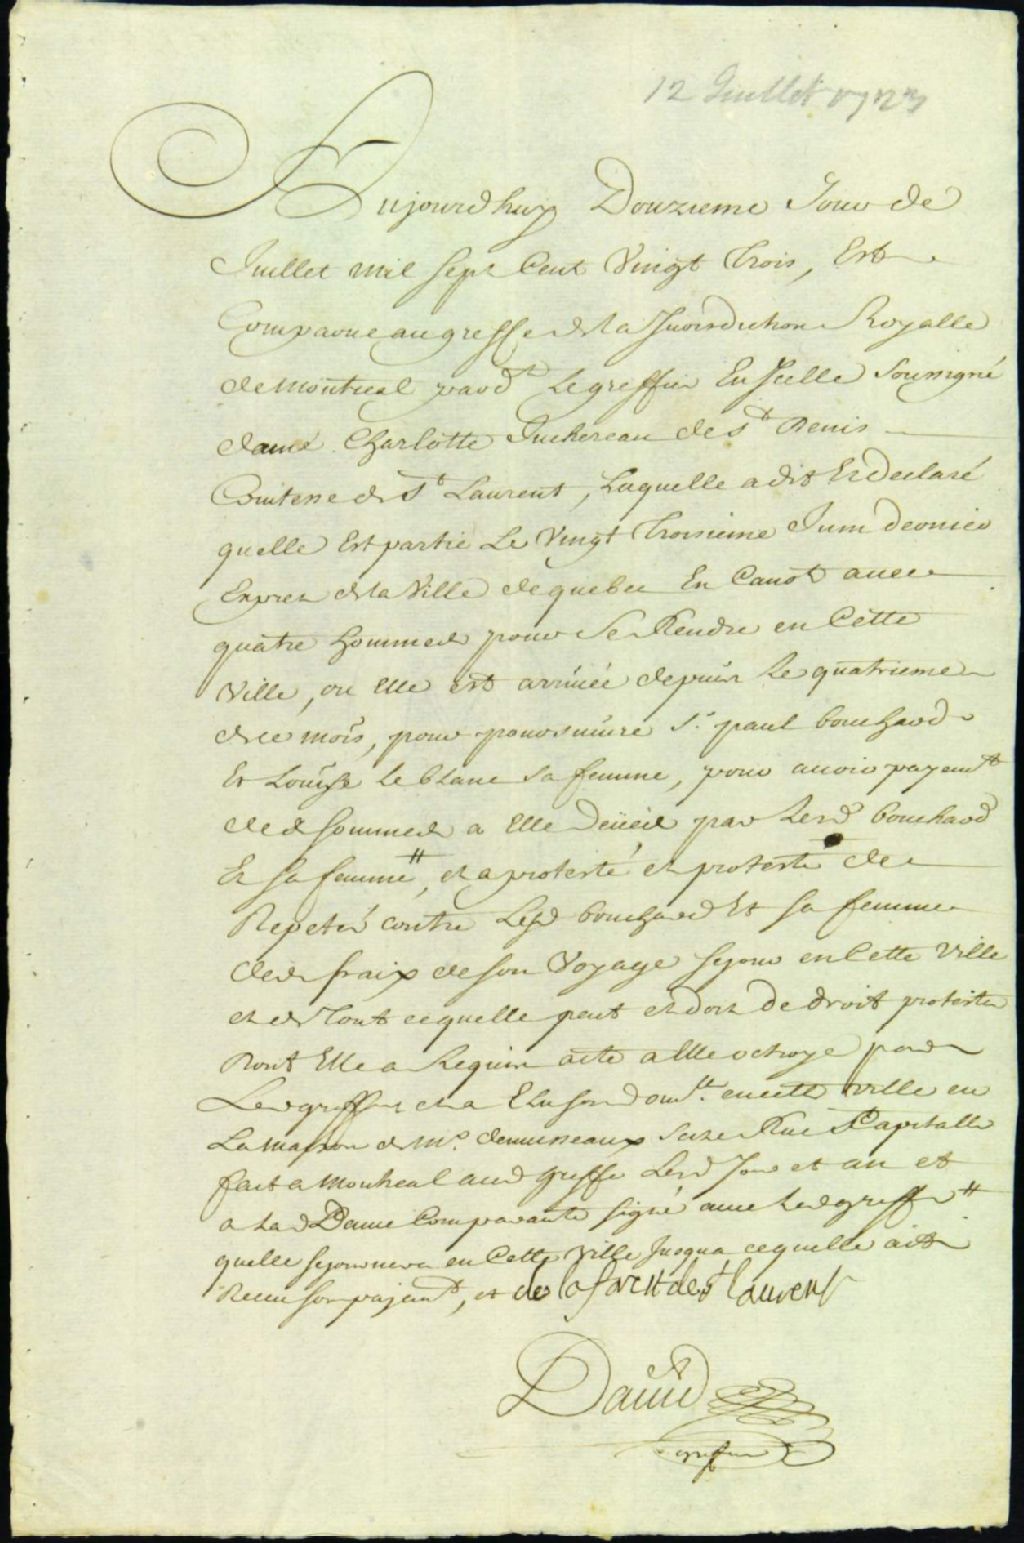 12 Juillet 1723
Aujourdhuy Douzieme Jour de
Juillet mil sept Cent Vingt Trois, Est
Comparue au greffe de la Jurisdiction Royalle
de Montreal pard<sup>t</sup> Le greffier En Icelle Soussigné
dame Charlotte Juchereau de S<sup>t</sup> Denis
Comtesse de S<sup>t</sup> Laurent, Laquelle a dit Et declaré
quelle Est partie Le Vingt Troisieme Juin dernier
Exprez de la Ville de quebec En Canot avec
quatre hommes pour Se Rendre en Cette
Ville, ou elle est arrivée depuis Le quatrieme
de ce mois, pour poursuivre S<sup>r</sup> paul bouchard
Et Louise Le blanc sa femme, pour avoir payem<sup>t</sup>
des sommes a Elle Deües par Lesd bouchard
Et sa femme #, et a protesté et proteste de
Repeter contre Lesd bouchard Et sa femme
des fraix de son Voyage sejour en Cette Ville
et de Tout ce quelle peut et doit de droit protester
Dont Elle a Requis acte a Elle octroyé par
Led greffier et a Elu son dom<sup>lle</sup> en cette ville en
La Maison de M<sup>r</sup> demuseaux size Rue S<sup>t</sup> Capitalle
fait a Montreal aud greffe Lesd Jour et an et
a Lad Dame Comparante signé avec Led greffier #
quelle sejournera en Cette Ville Jusqua ce quelle ait
Receu son payem<sup>t</sup>, et de la forest de S<sup>t</sup> laurent
David
greffier